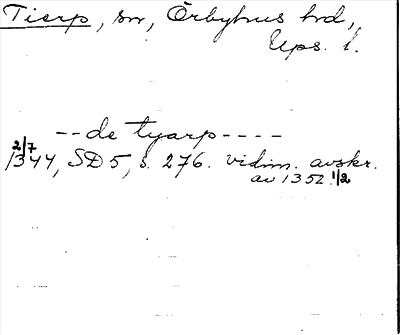 Tierp, sn, Örbyhus hrd,
Ups. l.
--de tyarp----
2/7
1344, SD5, s. 276. vidim. avskr.
av 1352 1/2